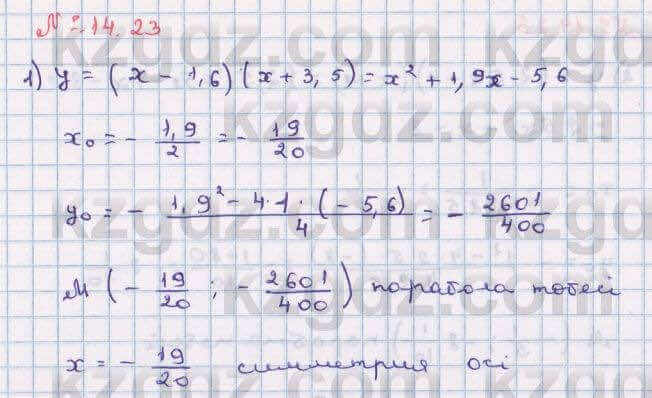 № 14.23
1) y = (x - 1,6)(x + 3,5) = x² + 1,9x - 5,6
x₀ = - 1,9/2 = - 19/20
y₀ = - (1,9² - 4·1·(-5,6))/4 = - 2601/400
M (- 19/20 ; - 2601/400) парабола төбесі
x = - 19/20 симметрия осі
kzgdz.com